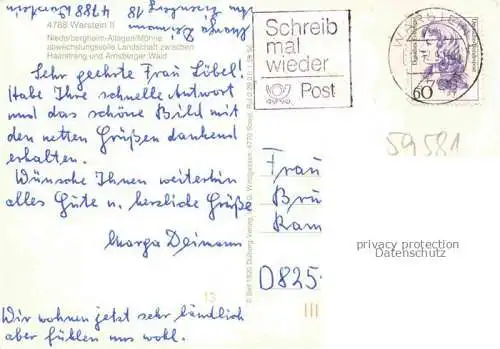 4788 Warstein II
Niederbergheim-Allagen/Möhne
abwechslungsvolle Landschaft zwischen
Haarstrang und Arnsberger Wald
Sehr geehrte Frau Löbel!
Habe Ihre schnelle Antwort
und das schöne Bild mit
den netten Grüßen dankend
erhalten.
Wünsche Ihnen weiterhin
alles Gute u. herzliche Grüße
Marga Deimann
Wir wohnen jetzt sehr ländlich
aber fühlen uns wohl.
Marga Deimann
18 4788 Warstein
Schreib
mal
wieder
Post
60
59581
Frau
Bru
Ram
0825
privacy protection
Datenschutz
13